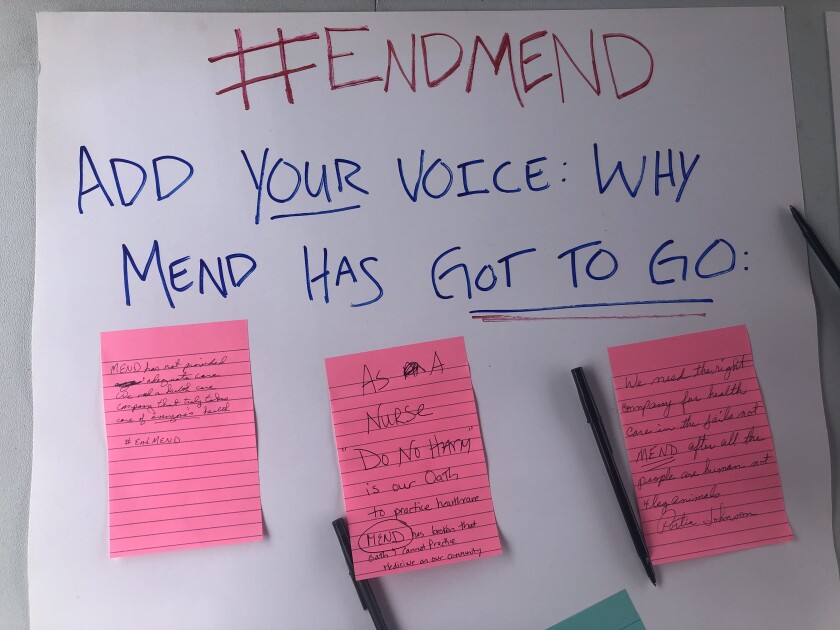 #ENDMEND
ADD YOUR VOICE: WHY
MEND HAS GOT TO GO:
MEND has not provided
adequate care
We need a health care
company that truly takes
care of everyone's health
#EndMEND
AS A
NURSE
"DO NO HARM"
is our Oath
to practice healthcare
MEND has broken that
oath & cannot Practice
Medicine on our community
We need the right
company for health
care in the jails not
MEND after all the
people are human not
4 leg animals
Johnson